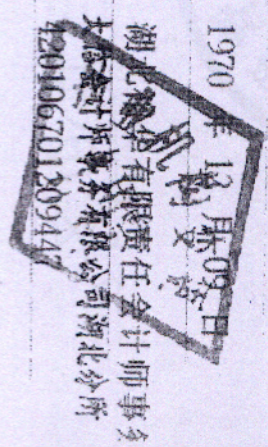 1970 年 12 月 09 日
湖北 有限责任会计师事务
大信会计师事务有限公司湖北分所
420106701209447